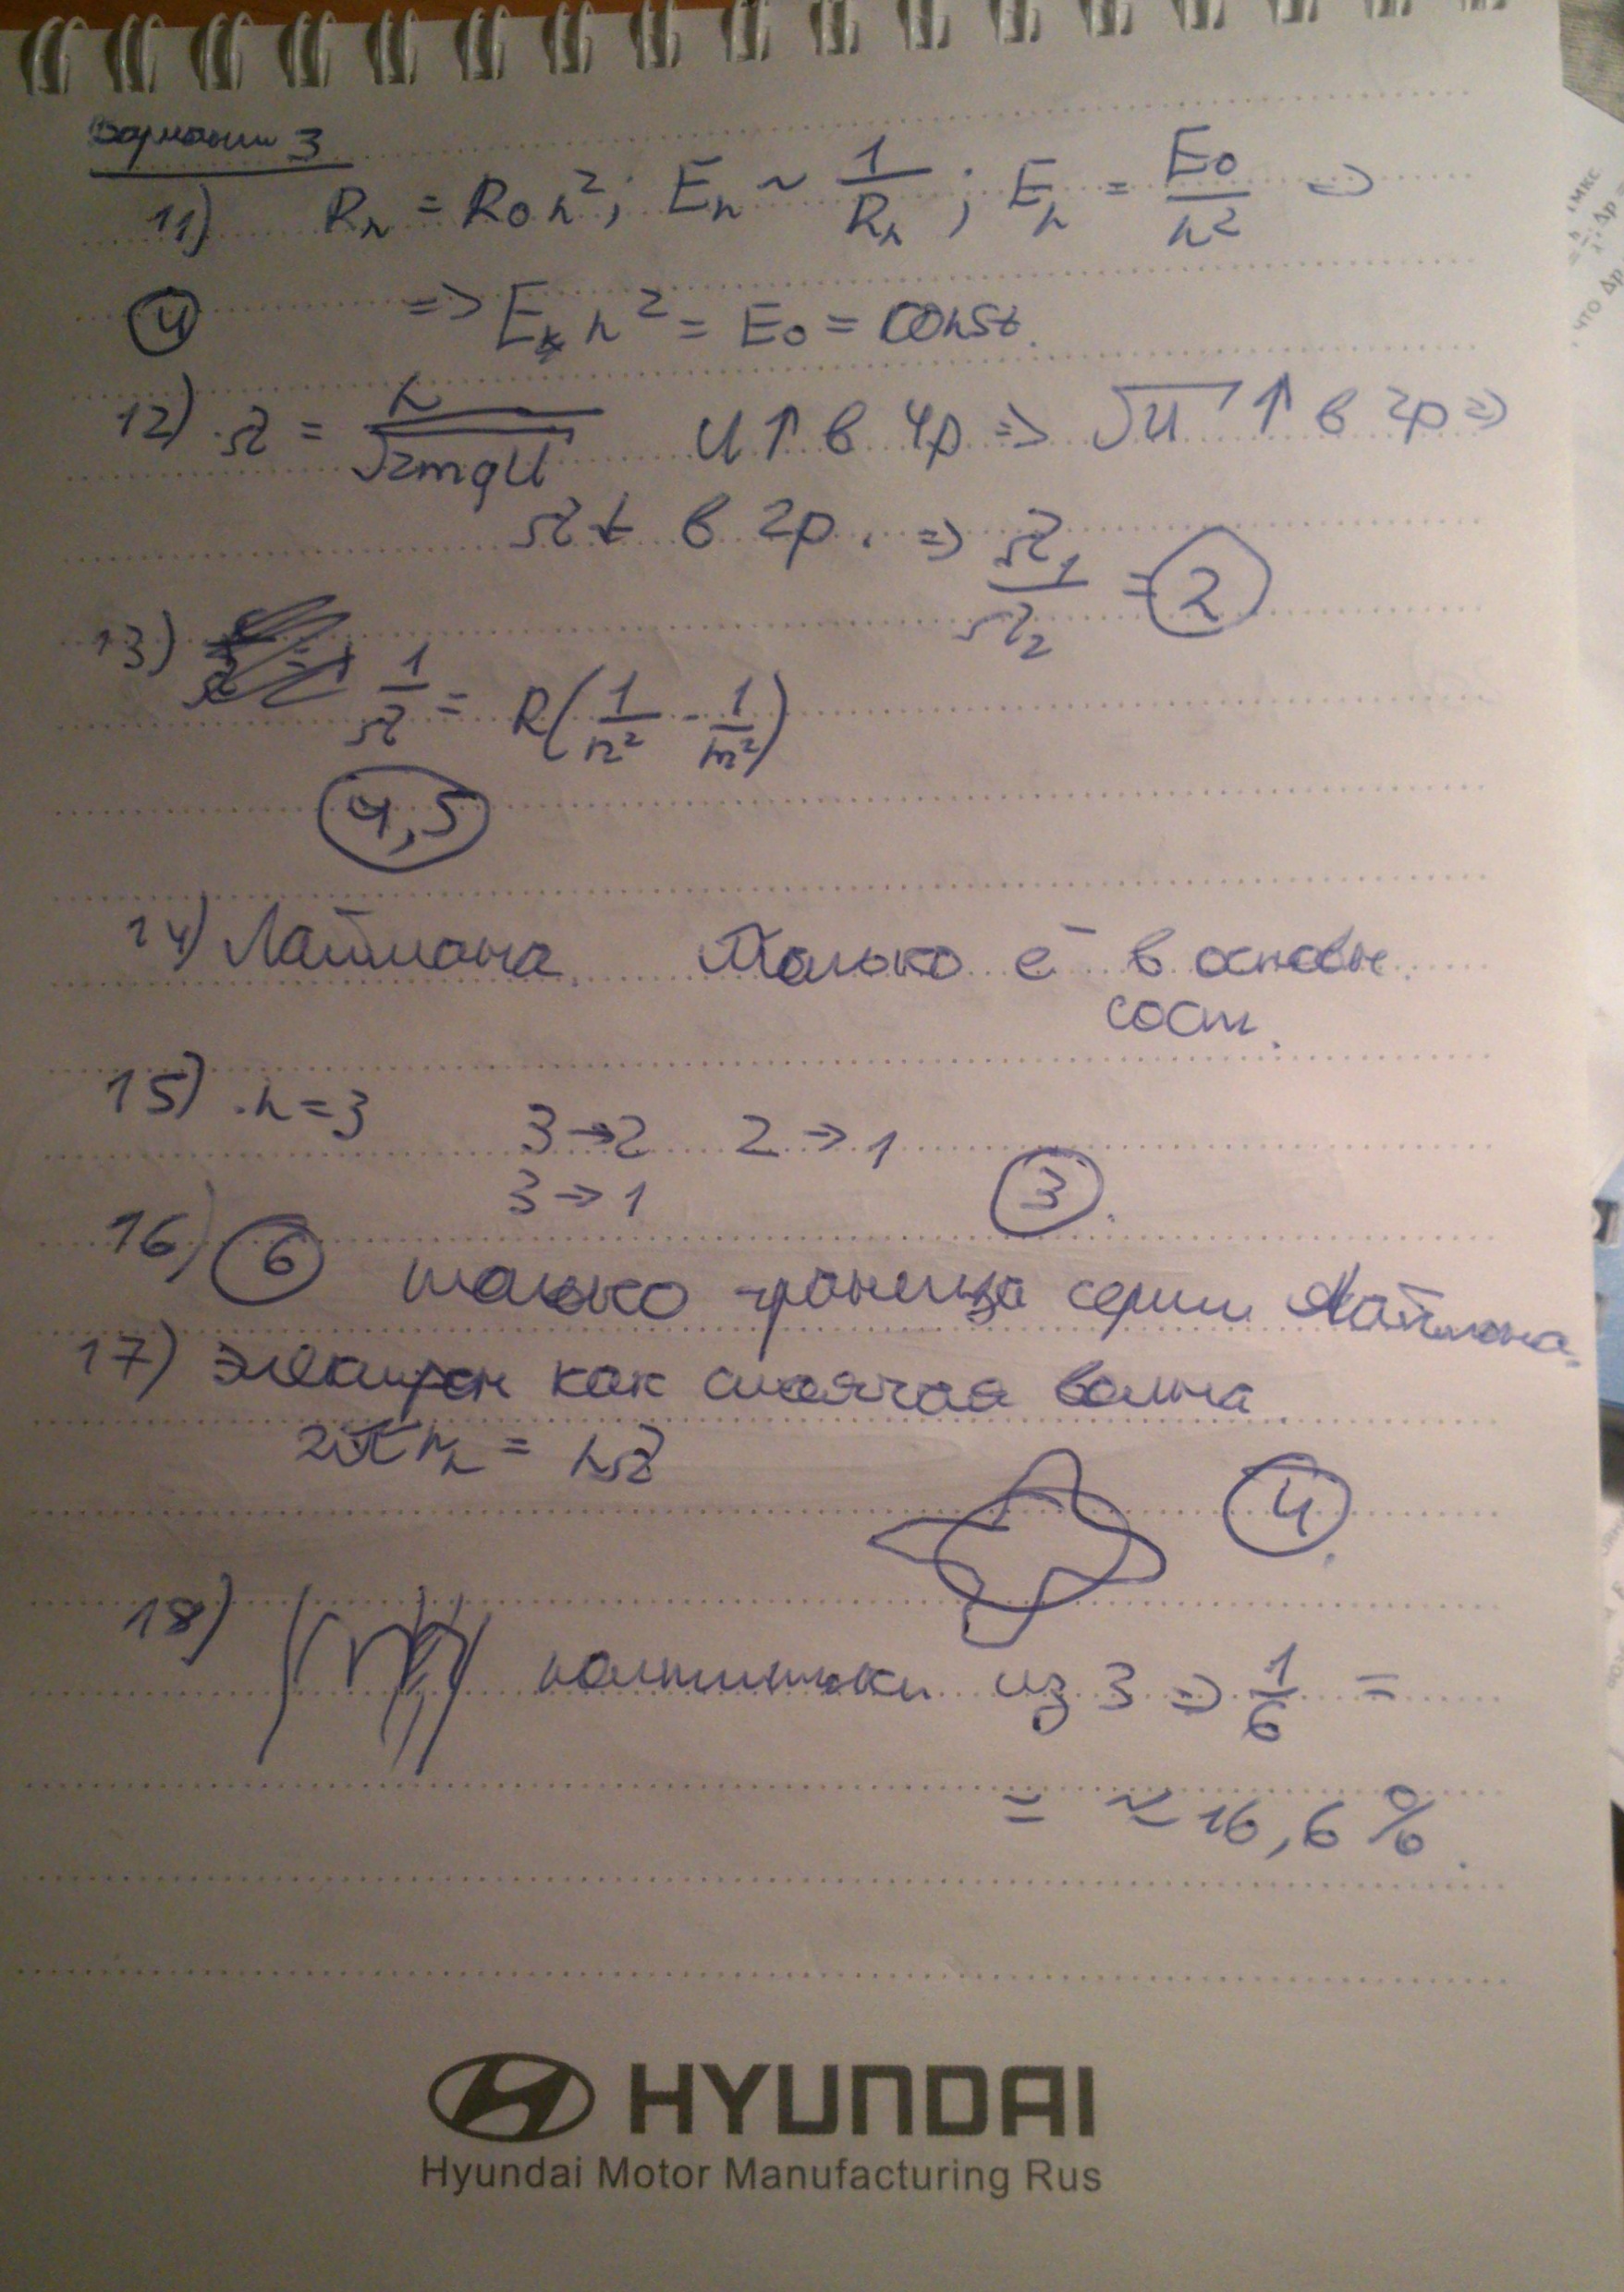 Вариант 3
11) Rn = R0 n²; En ~ 1/Rn; En = E0/n² =>
(4) => En n² = E0 = const.
12) λ = h/√2mqU U↑ в 4р => √U ↑ в 2р =>
λ↓ в 2р. => λ1/λ2 = (2)
13) 1/λ = R(1/n² - 1/m²)
(4,5)
14) Лаймана. Только e⁻ в основн.
сост.
15) n=3 3→2 2→1
3→1 (3).
16) (6) только граница серии Лаймана.
17) электрон как стоячая волна.
2πrn = nλ
(4).
18) полтинки из 3 => 1/6 =
= ≈ 16,6%.
HYUNDAI
Hyundai Motor Manufacturing Rus
мкс
Δp
что Δp